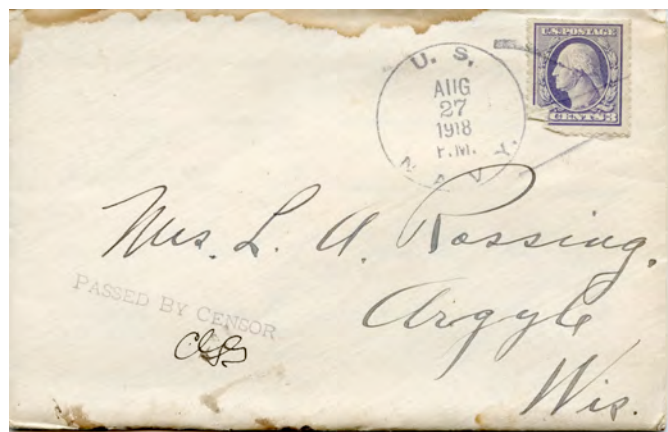 U.S. POSTAGE
CENTS 3
U. S.
AUG
27
1918
P.M.
NAVY
Mrs. L. A. Rossing,
Argyle
Wis.
PASSED BY CENSOR